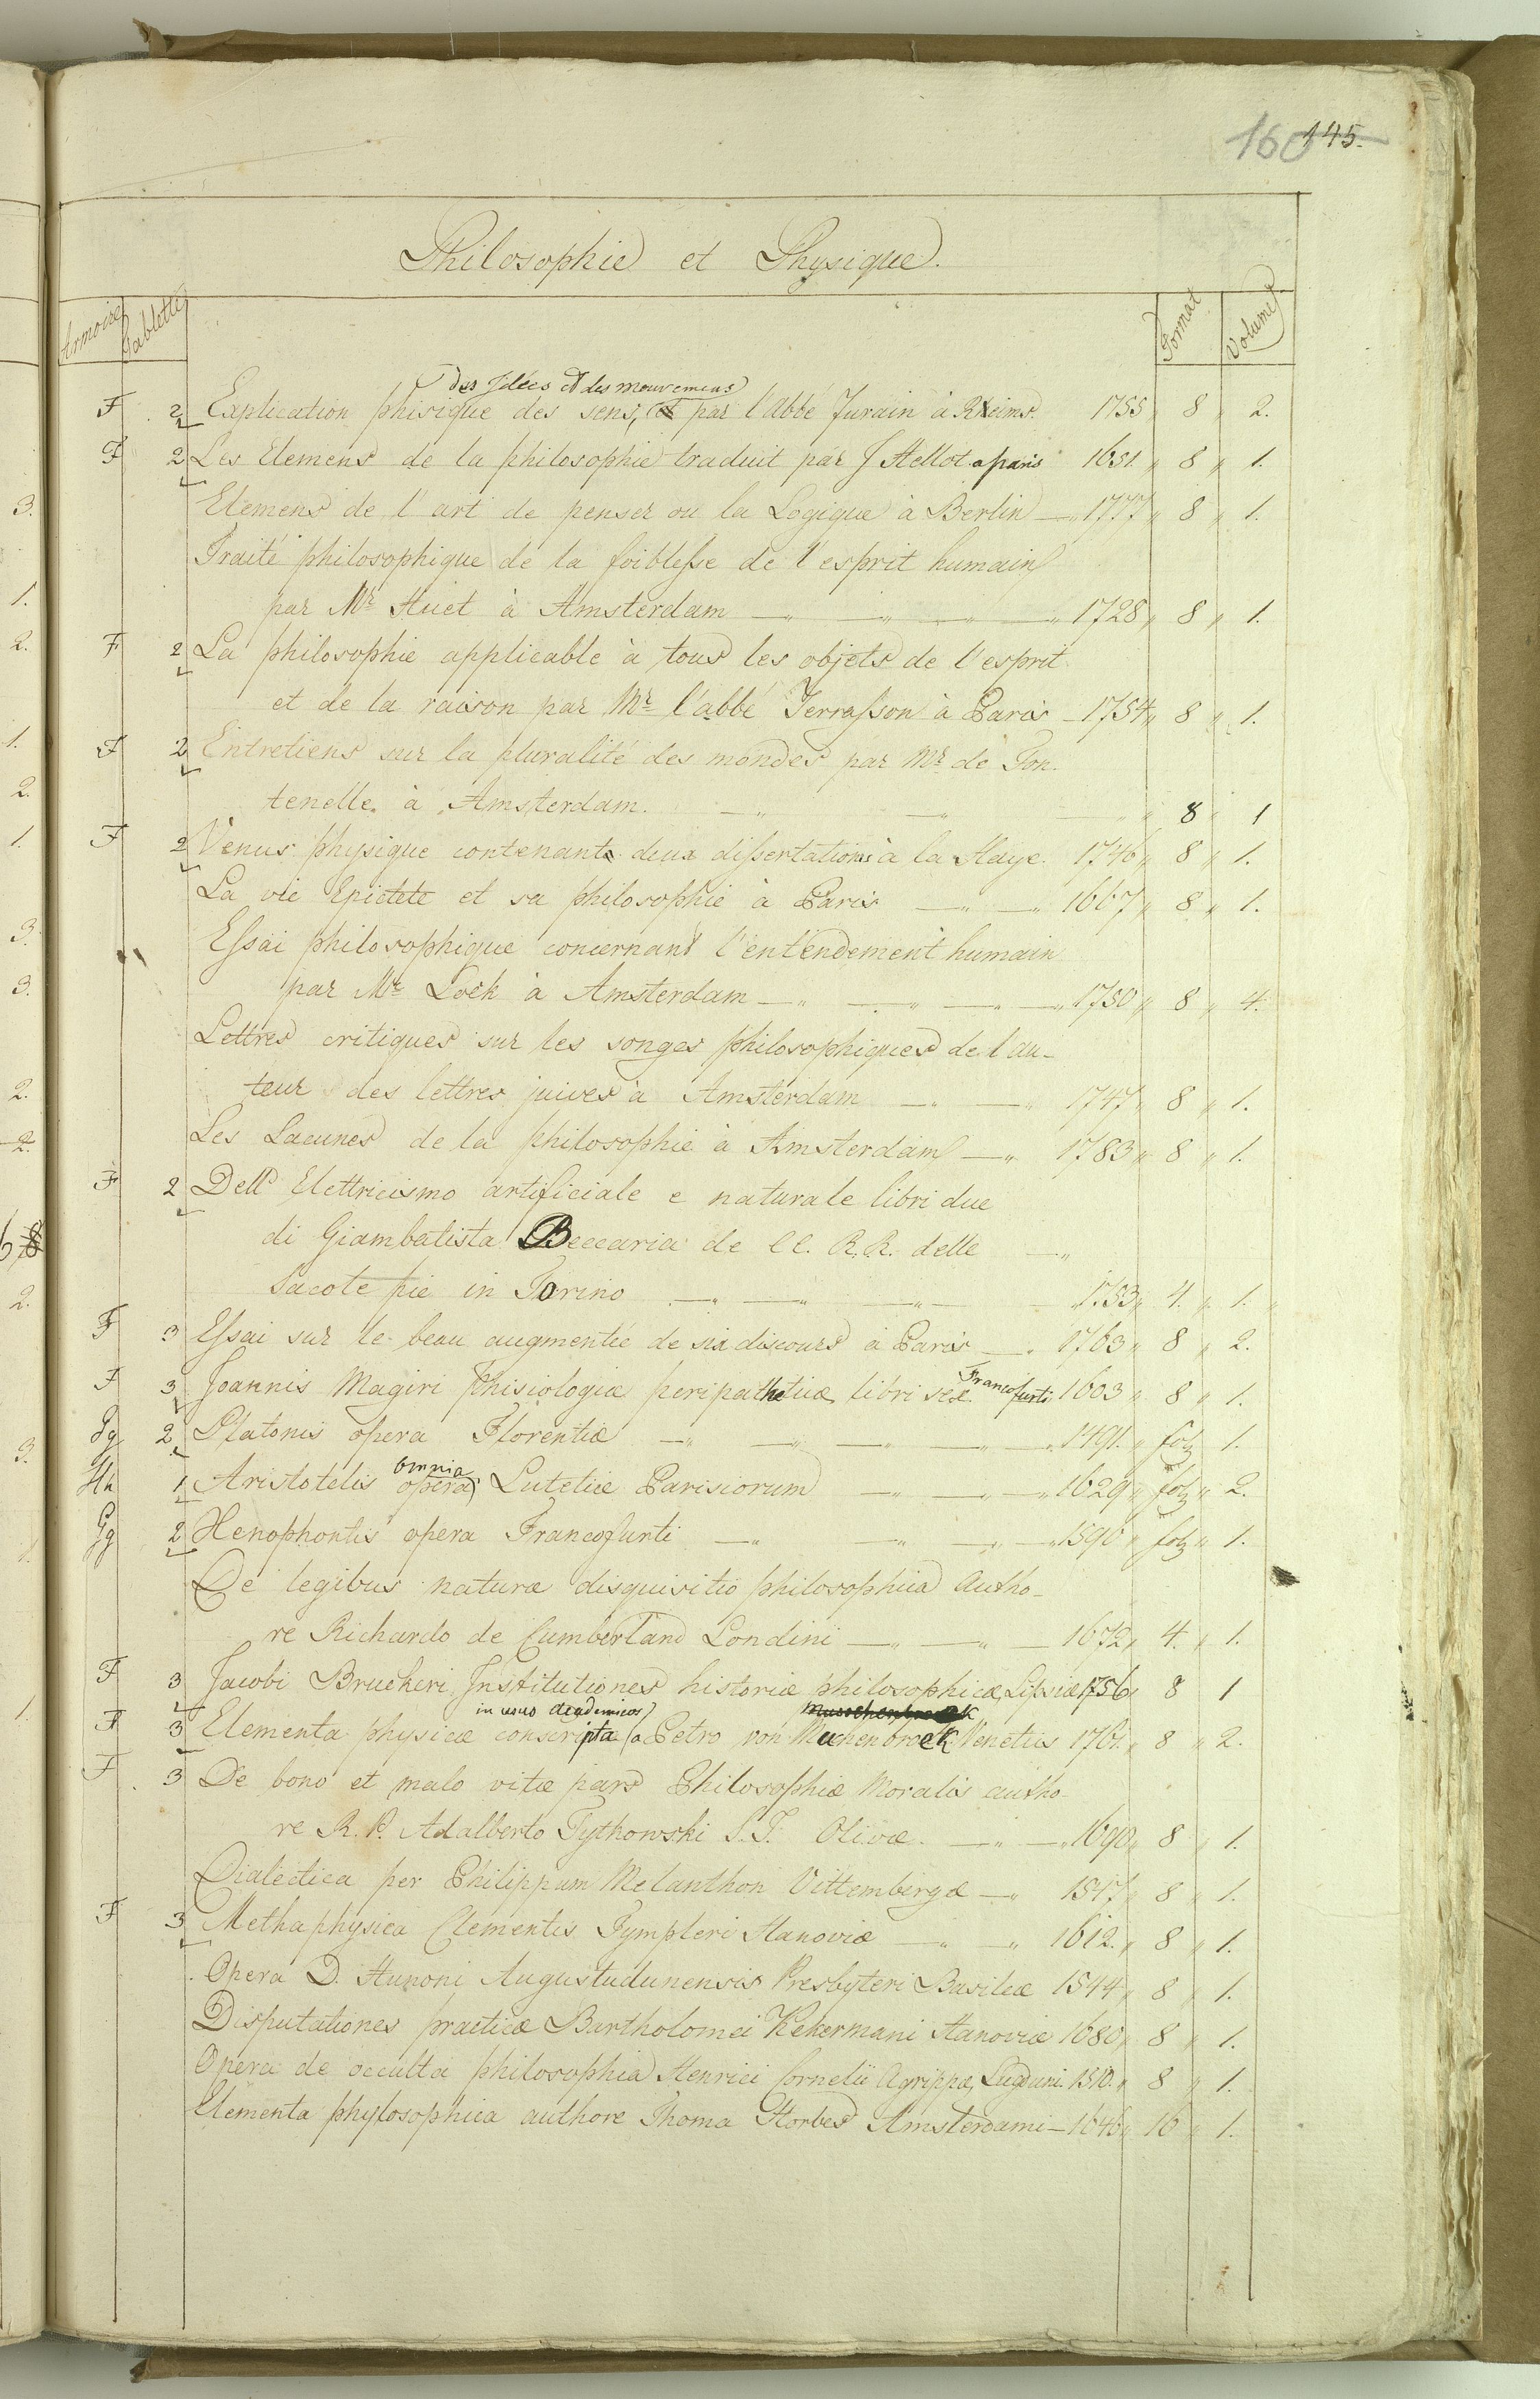 160 145.
Philosophie et Physique.
Armoire Tablette Format Volume
des Idées et des mouvemens
F 2 Explication phisique des sens, par l'Abbé Jurain à Reims. 1755 8 2.
F 2 Les Elemens de la philosophie traduit par J Hellot a paris 1651. 8 1.
3.
Elemens de l'art de penser ou la Logique à Berlin 1777 8 1.
Traité philosophique de la foiblesse de l'esprit humain
1.
par Mr Huet à Amsterdam 1728 8 1.
2.
F 2 La philosophie applicable à tous les objets de l'esprit
et de la raison par Mr l'abbé Terrasson à Paris 1754 8 1.
1.
F 2 Entretiens sur la pluralité des mondes par Mr de Fon-
2.
tenelle à Amsterdam. 8 1
1.
F 2 Venus physique contenant deux dissertations à la Haye. 1746 8 1.
La vie Epictete et sa philosophie à Paris 1667 8 1.
3.
Essai philosophique concernant l'entendement humain
3.
par Mr Lock à Amsterdam 1750 8 4.
Lettres critiques sur les songes philosophiques de l'au-
2.
teur des lettres juives à Amsterdam 1747 8 1.
2.
Les Lacunes de la philosophie à Amsterdam 1783 8 1.
F 2 Dell Elettricismo artificiale e naturale libri due
di Giambatista Beccaria de CC. R.R. delle
2.
Sacote pie in Torino 1753 4. 1.
F 3 Essai sur le beau augmentée de six discours à Paris 1763 8 2.
F 3 Joannis Magiri phisiologiæ peripatheticæ libri sex Francofurti 1603 8 1.
3.
Gg 2 Platonis opera Florentiæ 1491. fol 1.
omnia
Hh 1 Aristotelis opera Lutetiæ Parisiorum 1629 fol 2.
Gg 2 Xenophontis opera Francofurti 1596 fol 1.
De legibus naturæ disquisitio philosophica Autho-
re Richardo de Cumberland Londini 1672 4. 1.
F 3 Jacobi Bruckeri Institutiones historiæ philosophicæ, Lipsiæ 1756 8 1
1.
in usus academicos Musschenbroek
F 3 Elementa physicæ conscripta a Petro von Muchenbroek Venetiis 1761. 8 2.
F 3 De bono et malo vitæ pars Philosophiæ Moralis autho-
re R.P. Adalberto Tythowski S.J. Olivæ. 1690 8 1.
Dialectica per Philippum Melanthon Vittembergæ 1547 8 1.
F 3 Methaphysica Clementis Tympleri Hanoviæ 1612. 8 1.
Opera D. Hunoni Augustudunensis Presbyteri Basileæ 1544 8 1.
Disputationes practicæ Bartholomei Kekermani Hanoviæ 1680 8 1.
Opera de occulta philosophia Henrici Cornelii Agrippæ, Lugduni. 1510. 8 1.
Elementa phylosophica authore Thoma Horbes Amsterdami 1646 16 1.